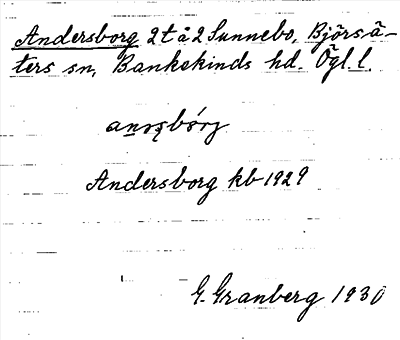 Andersborg 2 t å 2 Sunnebo, Björsä-
ters sn, Bankekinds hd. Ögl. l.
Andersborg kb 1929
G. Granberg 1930